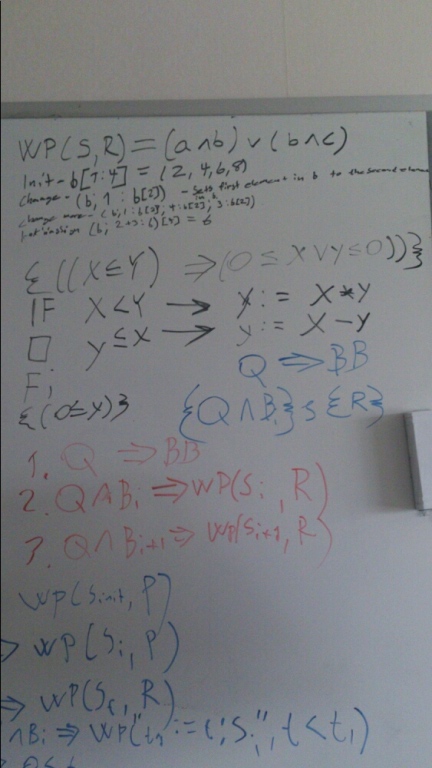 WP(S,R) = (a∧b) ∨ (b∧c)
Init - b[1:4] = (2,4,6,8)
Change - (b; 1 : b[2]) - Sets first element in b to the second element
change more - (b; 1: b[3]; 4: b[2]; 3: b[2])
(b; 2+3:6)[3] = 6
{((X≤Y) ⇒ (0≤X∨Y≤0))}
IF X<Y → y:= X*Y
□ y≤x → y:= X-Y
Fi
Q ⇒ BB
{(0≤Y)}
{Q∧Bi}S{R}
1. Q ⇒ BB
2. Q∧Bi ⇒ WP(Si, R)
3. Q∧Bi+1 ⇒ WP(Si+1, R)
WP(Sinit, P)
⇒ WP(Si, P)
⇒ WP(Sc, R)
∧Bi ⇒ WP("t1 := t; Si", t<t1)